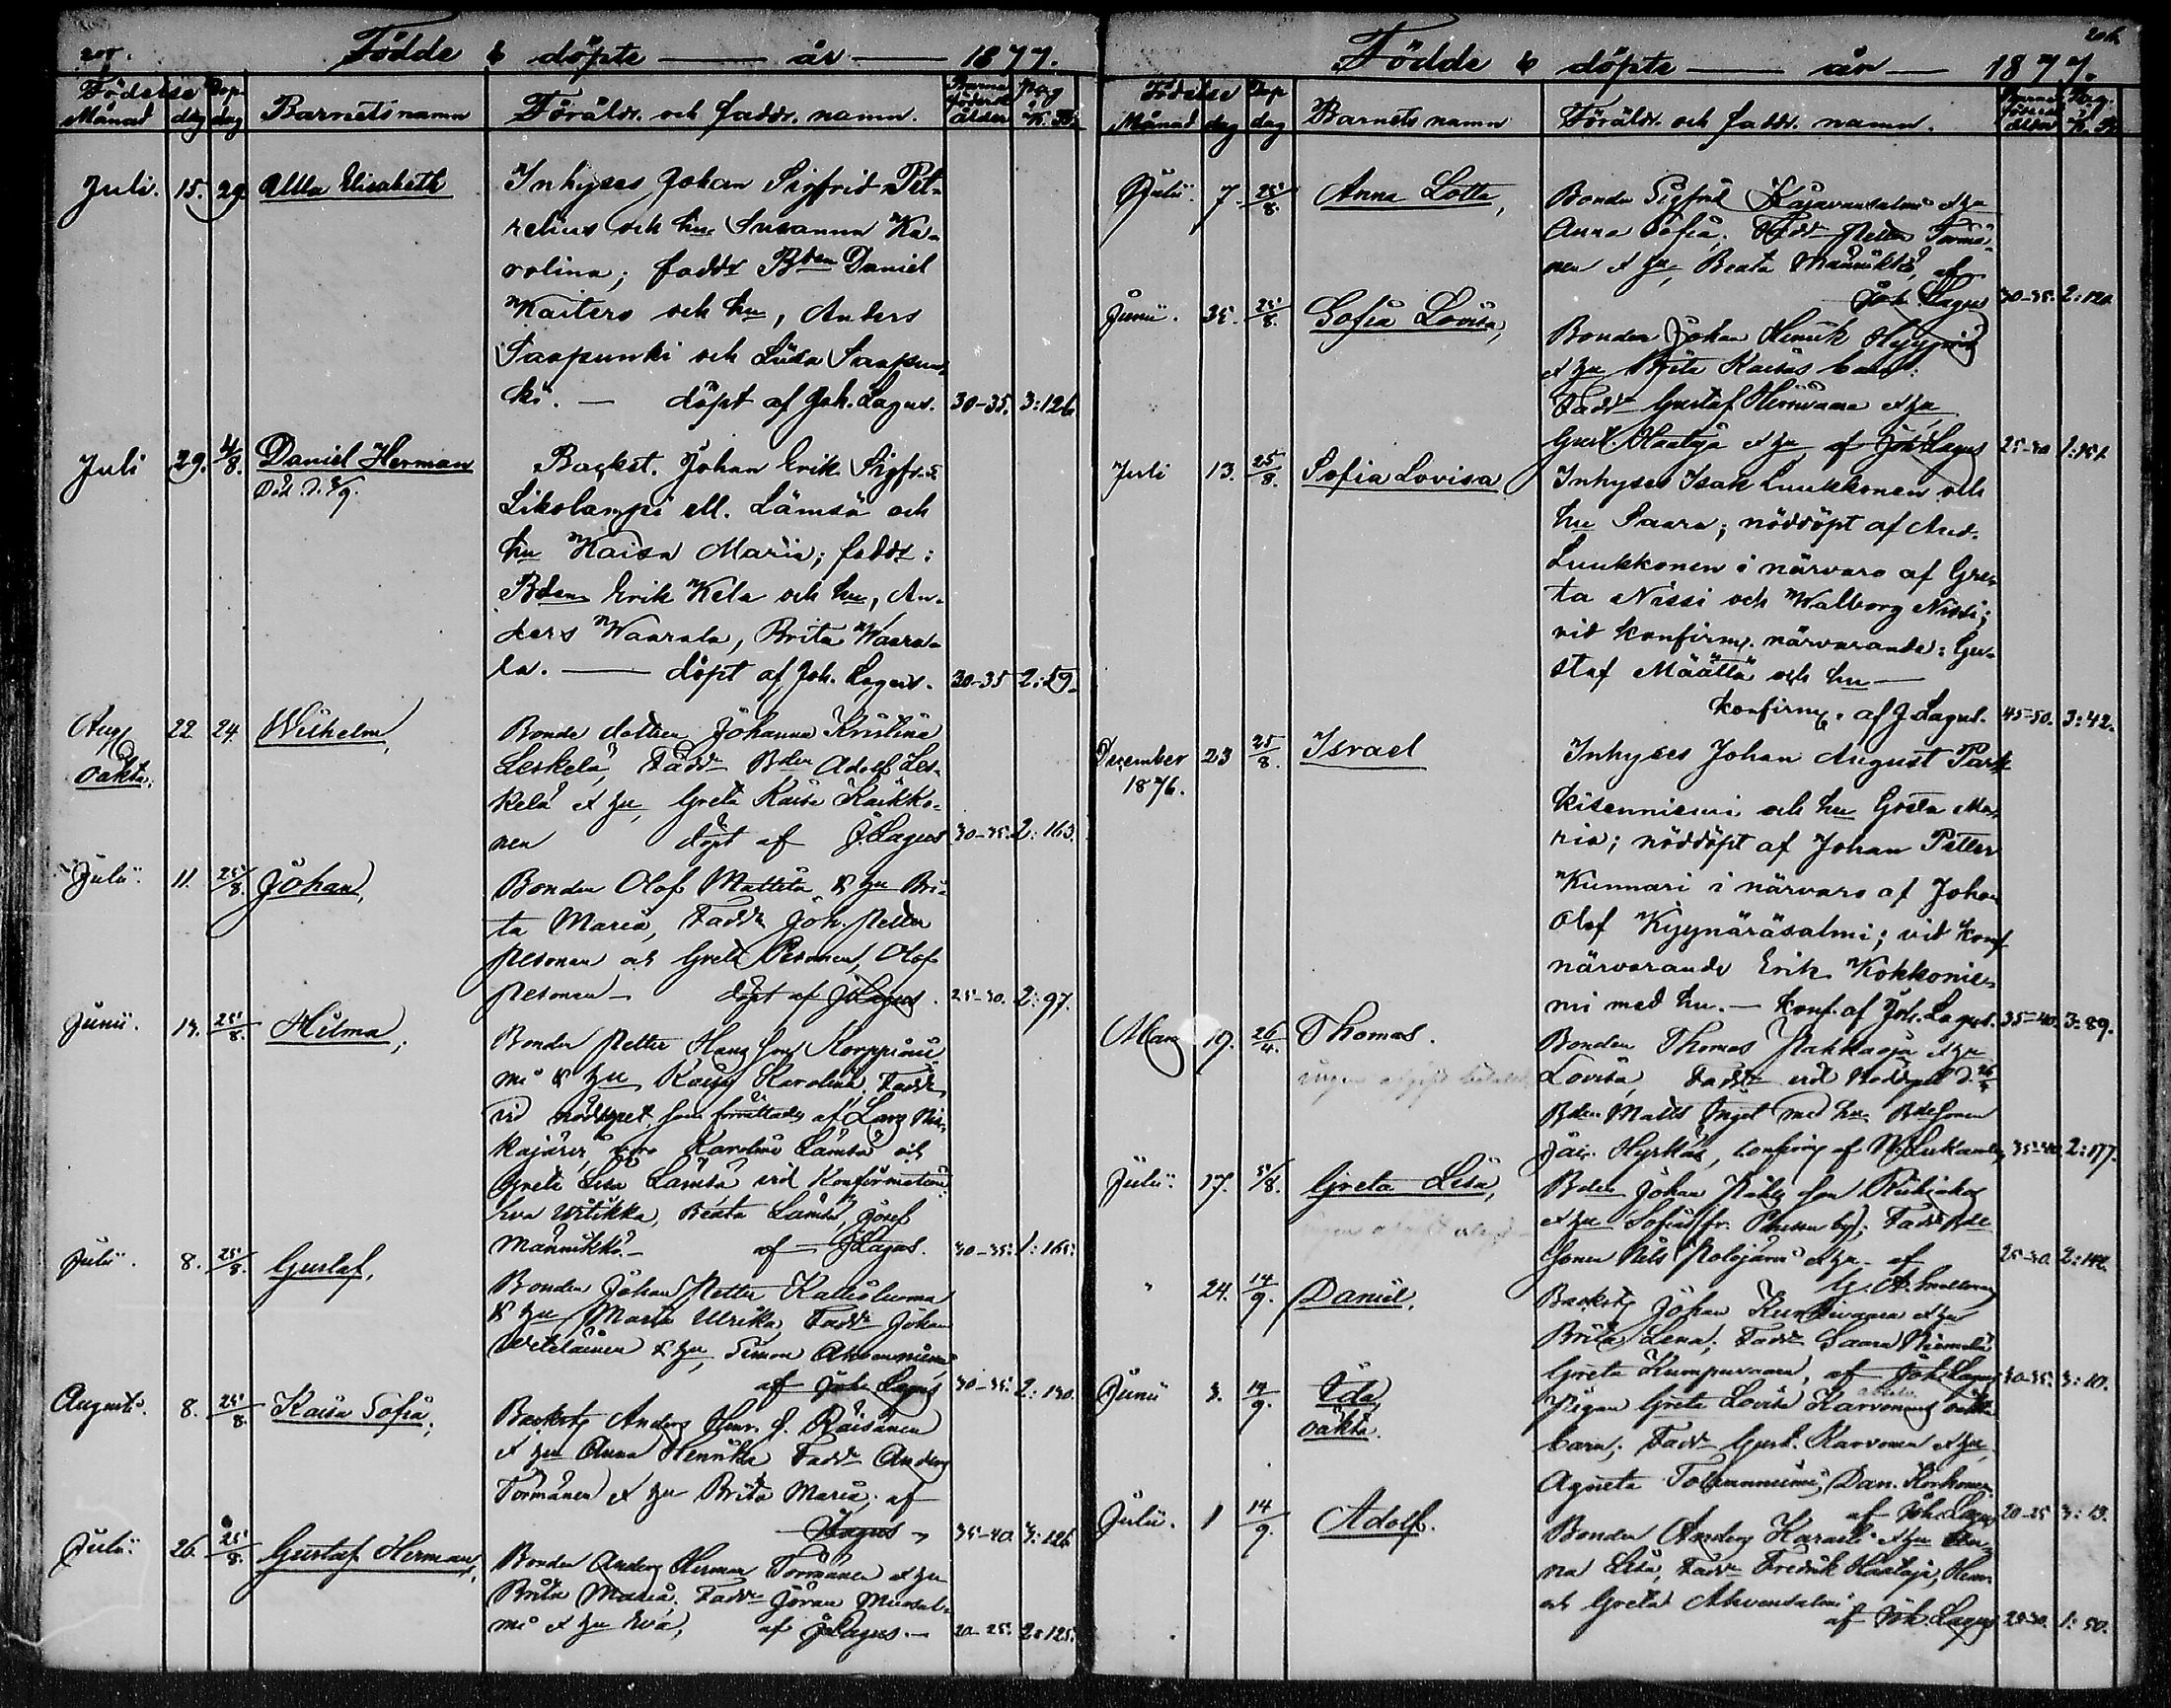 Födde & döpte — år — 1877.
Födelse Dop-
Månad dag dag Barnets namn Föräldr. och faddr. namn. ålder K. B.
Juli. 15. 29 Ulla Elisabeth Inhyses Johan Sigfrid Pet-
relius och hu Susanna Ka-
rolina; faddr Bden Daniel
Kaitero och hu, Anders
Saapunki och Liisa Saapun-
ki. — döpt af Joh. Lagus. 30-35. 3:126.
Juli 29. 4/8. Daniel Herman Backst. Johan Erik Sigfr.
Död d. /9. Likolampi ell. Lämsä och
hu Kaisa Maria; faddr:
Bden Erik Kela och hu, An-
ders Waarala, Brita Waara-
la. — döpt af Joh. Lagus. 30-35 2:59.
Aug 22 24. Wilhelm, Bonde dottren Johanna Kristina
oäkta. Leskelä, Faddr Bden Adolf Les-
kelä & hu, Greta Kaisa Kaikko-
nen döpt af J. Lagus 30-35. 2:163.
Julii 11. 25/8. Johan, Bonden Olof Mattila & hu Bri-
ta Maria, Faddr Joh. Petter
Pesonen och Greta Pesonen, Olof
Pesonen — döpt af J. Lagus. 25-30. 2:97.
Junii. 19. 25/8. Hilma, Bonden Petter Hans son Korppinie-
mi & hu Kaisa Karolina, Faddr
vid nöddopet, som förrättades af Lars
Karolina Lämsä och
Greta Lisa Lämsä vid Konfirmation:
Eva Witikka, Beata Lämsä, Josef
Männikkö. — af J. Lagus. 30-35. 1:165.
Julii. 8. 25/8. Gustaf, Bonden Johan Petter Kallioluoma
& hu Maria Ulrika, Faddr Johan
Wetelainen & hu, Simon
af Joh. Lagus 30-35. 2:130.
Augusti. 8. 25/8. Kaisa Sofia, Backstg Anders Henr. s. Räisänen
& hu Anna Henrika Faddr Anders
Törmänen & hu Brita Maria; af
J. Lagus — 35-40. 3:126
Julii. 26. 25/8. Gustaf Herman, Bonden Anders Herman Törmänen & hu
Brita Maria. Faddr Jöran Murtal-
mi & hu Eva, af J. Lagus. — 20-25. 2:125.
Födde & döpte — år — 1877.
Födelse Dop
Månad dag dag Barnets namn Föräldr. och faddr. namn.
Julii. 7. 25/8. Anna Lotta, Bonden Sigfrid Kajavansalmi & hu
Anna Sofia, Faddr Petter Törmä-
nen & hu, Beata Männikkö, af
Joh. Lagus 30-35. 2:120.
Junii. 25. 25/8. Sofia Lovisa, Bonden Johan Henrik
& hu Brita Kaisas barn:
Faddr Gustaf Hirvivaara & hu
Gust. Haataja & hu af Joh. Lagus 25-30 1:
Juli 13. 25/8. Sofia Lovisa Inhyses Isak Luukkonen och
hu Saara; nöddöpt af And.
Luukkonen i närvaro af Gre-
ta Nissi och Walborg Nissi;
vid konfirm. närvarande: Gu-
staf Määttä och hu —
konfirm. af J. Lagus. 45-50. 3:42.
December 23 25/8. Israel Inhyses Johan August Park-
1876. kisenniemi och hu Greta Ma-
ria; nöddöpt af Johan Petter
Kunnari i närvaro af Johan
Olof Kyynäräsalmi; vid konf.
närvarande Erik Kokkonie-
mi med hu. — konf. af Joh. Lagus. 35-40. 3:89.
Mars 19. 26/4. Thomas. Bonden Thomas Pahkaoja & hu
Lovisa, Faddr vid
Bden Matts Inget med hu, Bdesonen
Hyrkäs, af 35-40. 2:177.
Julii. 17. 5/8. Greta Lisa, Bden Johan
& hu Sofia Faddr Bde
Sonen Nils Polojärvi & hu af 25-30.
" 24. 14/9. Daniel. Backstg Johan Kurkivaara & hu
Brita Lena; Faddr Saara Niemelä
Greta Kumpuvaara, af Joh. Lagus 30-35. 3:10.
Junii 3. 14/9. Ida, Pigan Greta Lovisa Karvonens oäkta
oäkta. barn; Faddr Gust. Karvonen & hu,
Agneta Tolvanniemi, Dan. Korhonen
af Joh. Lagus 20-25 3:13.
Julii. 1 14/9. Adolf. Bonden Anders Karaila & hu An-
na Lisa, Faddr Fredrik Haataja, Henr.
och Greta Ahvensalmi
af Joh. Lagus 25-30. 1:50.